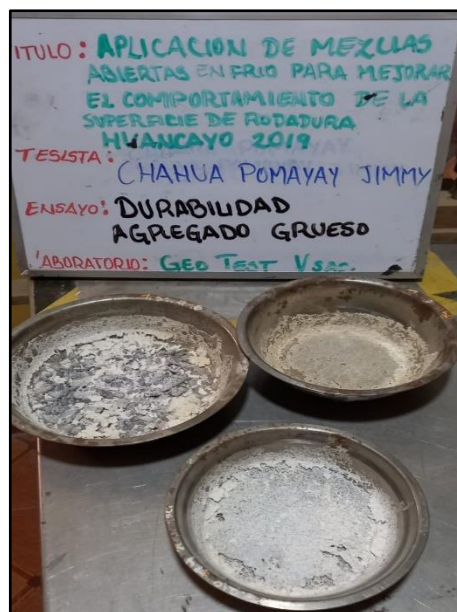 ITULO: APLICACION DE MEZCLAS
ABIERTAS EN FRIO PARA MEJORAR
EL COMPORTAMIENTO DE LA
SUPERFICIE DE RODADURA
HUANCAYO 2019
TESISTA:
CHAHUA POMAYAY JIMMY
ENSAYO: DURABILIDAD
AGREGADO GRUESO
LABORATORIO: GEO TEST V SAC.